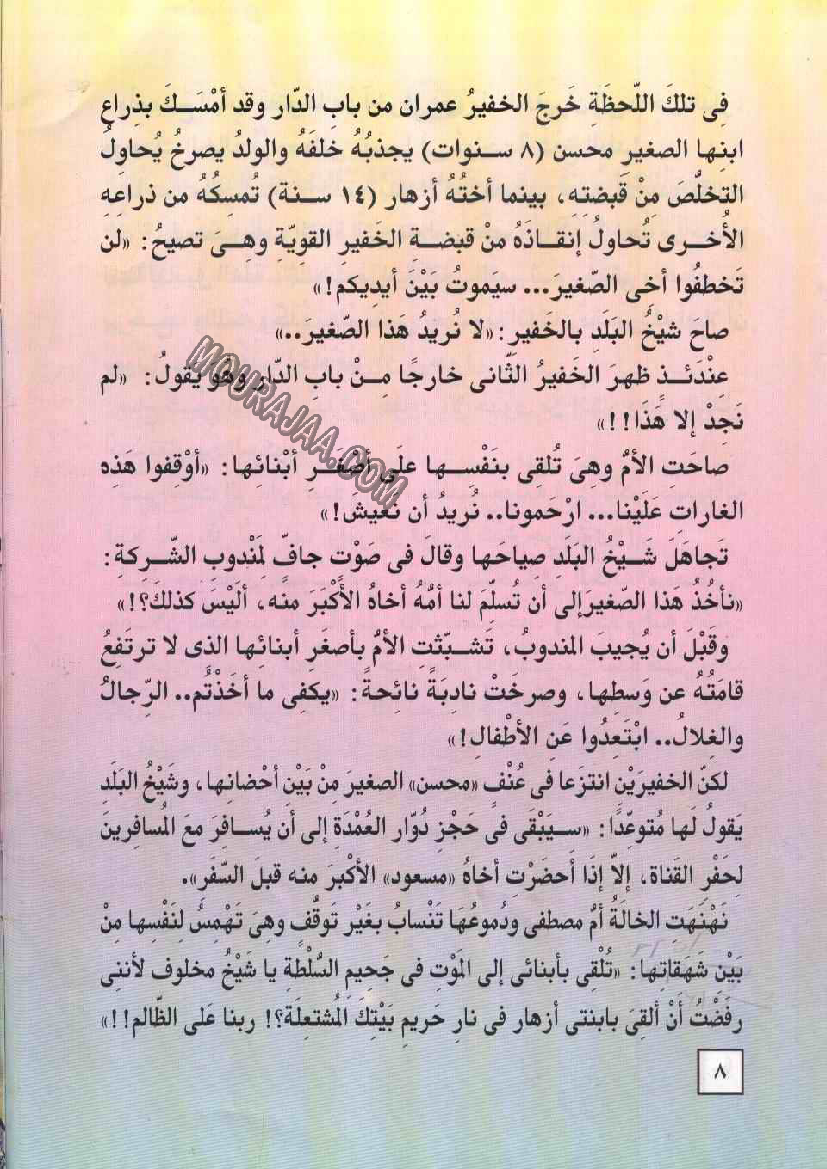 فِى تلكَ اللّحظَةِ خَرجَ الخفيرُ عمران من بابِ الدّار وقد أمْسَـكَ بذِراعِ
ابنِها الصغيرِ محسن (٨ سـنوات) يجذبُهُ خلفَهُ والولدُ يصرخُ يُحاوِلُ
التخلّصَ مِنْ قَبضتِهِ، بينما أختُهُ أزهار (١٤ سـنة) تُمسِكُهُ من ذراعِهِ
الأُخـرى تُحاولُ إنقـاذَهُ منْ قبضةِ الخَفيرِ القويّةِ وهىَ تصيحُ: «لن
تَخطفُوا أخِى الصّغيرَ... سيَموتُ بَيْنَ أيدِيكم!»
صاحَ شيْخُ البَلَدِ بالخَفيرِ: «لا نُريدُ هَذا الصّغيرَ..»
عِنْدَئـذٍ ظهرَ الخَفيرُ الثّانى خارجًا مِـنْ بابِ الدّارِ وهُو يقولُ: «لم
نَجدْ إلا هَذَا!!»
صاحَتِ الأمُّ وهِىَ تُلقِى بنَفْسِـها علَى أصْغـرِ أبْنائِها: «أوْقِفوا هَذِه
الغاراتِ عَلَيْنا... ارْحَمونا.. نُريدُ أن نَعيشَ!»
تَجاهَلَ شَـيْخُ البَلَدِ صِياحَها وقالَ فى صَوْتٍ جافٍّ لمَندوبِ الشّركةِ:
«نأخُذُ هَذا الصّغيرَ إلى أن تُسلّمَ لنا أمُّهُ أخاهُ الأكْبَرَ منه، ألَيْسَ كذلكَ؟!»
وقَبْلَ أن يُجيبَ المندوبُ، تَشـبّثتِ الأمُّ بأصغَرِ أبنائِها الذى لا ترتَفِعُ
قامَتُهُ عن وَسطِها، وصرخَتْ نادِبَةً نائِحةً: «يكفِى ما أخَذْتُم.. الرّجالُ
والغِلالُ.. ابْتَعِدُوا عَنِ الأطْفالِ!»
لكنّ الخفيرَيْنِ انتزَعا فى عُنْفٍ «محسن» الصغيرَ مِنْ بَيْنِ أحْضانِها، وشَيْخُ البَلَدِ
يَقولُ لَها مُتوعّدًا: «سـيَبْقَى فى حَجْزِ دُوّار العُمْدَةِ إلى أن يُسـافرَ معَ المُسافِرينَ
لِحَفْرِ القَناة، إلاّ إذَا أحضَرْتِ أخاهُ «مسعود» الأكْبرَ منه قبلَ السّفَرِ».
نَهْنَهَتِ الخالَةُ أمُّ مصطفى ودُموعُهَا تَنْسابُ بغَيْرِ تَوقُّفٍ وهِىَ تَهْمِسُ لِنَفْسِها مِنْ
بَيْنِ شَهَقاتِها: «تُلْقِى بأبنائى إلى المَوْتِ فى جَحيمِ السُّلْطةِ يا شَيْخُ مخلوف لأننى
رفَضْتُ أنْ ألقِىَ بابنتى أزهار فى نارِ حَريمِ بَيْتِكَ المُشتعِلَةِ؟! ربنا علَى الظّالم!!»
٨
MOURAJAA.COM